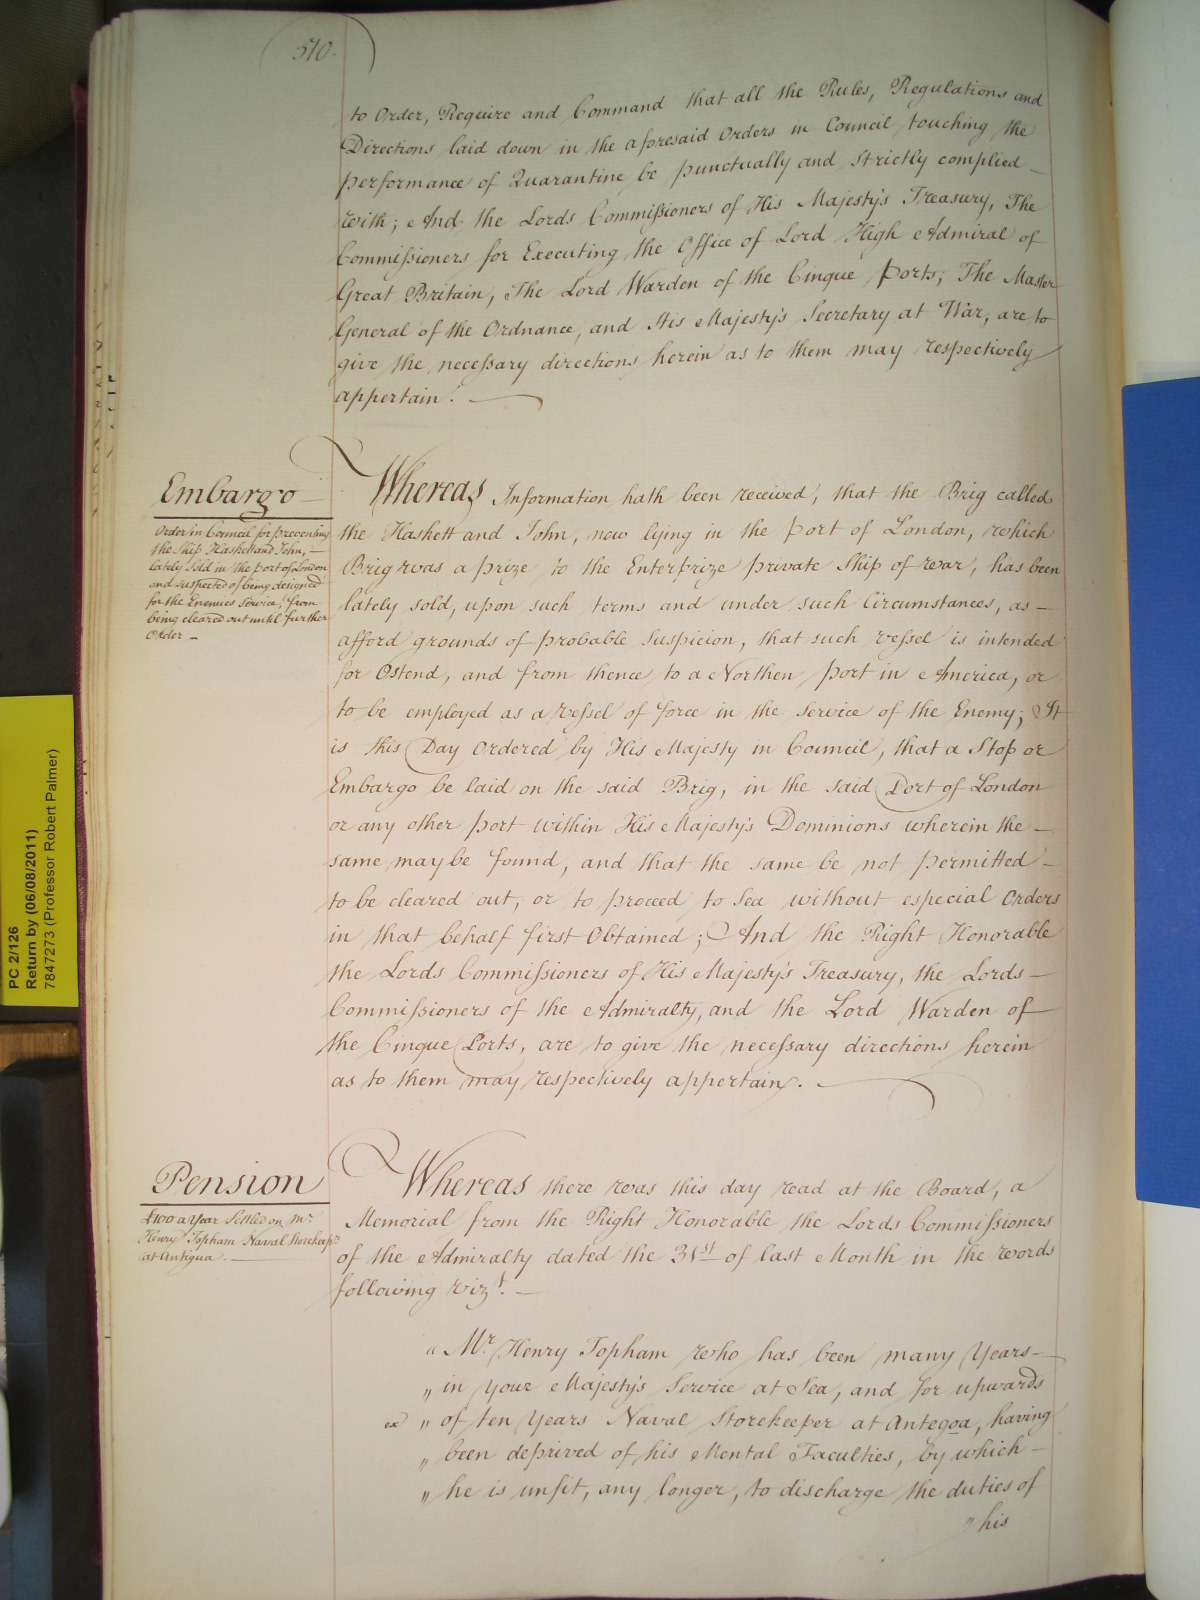 510.
to Order, Require and Command that all the Rules, Regulations and
Directions laid down in the aforesaid Orders in Council touching the
performance of Quarantine be punctually and strictly complied
with; And the Lords Commissioners of His Majesty's Treasury, The
Commissioners for Executing the Office of Lord High Admiral of
Great Britain, The Lord Warden of the Cinque Ports; The Master
General of the Ordnance, and His Majesty's Secretary at War, are to
give the necessary directions herein as to them may respectively
appertain.
Embargo
Order in Council for preventing
the Ship Haskett and John,
lately Sold in the port of London
and suspected of being designed
for the Enemies Service, from
being cleared out until further
Order
Whereas Information hath been received, that the Brig called
the Haskett and John, now lying in the Port of London, which
Brig was a prize to the Enterprize private Ship of war, has been
lately sold, upon such terms and under such Circumstances, as
afford grounds of probable Suspicion, that such vessel is intended
for Ostend, and from thence to a Northen port in America, or
to be employed as a vessel of force in the service of the Enemy; It
is this Day Ordered by His Majesty in Council, that a Stop or
Embargo be laid on the said Brig, in the said Port of London
or any other port within His Majesty's Dominions wherein the
same may be found, and that the same be not permitted
to be cleared out, or to proceed to Sea without especial Orders
in that behalf first Obtained; And the Right Honorable
the Lords Commissioners of His Majesty's Treasury, the Lords
Commissioners of the Admiralty, and the Lord Warden of
the Cinque Ports, are to give the necessary directions herein
as to them may respectively appertain.
Pension
£100 a Year Settled on Mr
Henry Topham Naval Storekeepr
at Antigua.
Whereas there was this day read at the Board, a
Memorial from the Right Honorable the Lords Commissioners
of the Admiralty dated the 31st of last Month in the words
following vizt.
" Mr Henry Topham who has been many Years
" in your Majesty's Service at Sea, and for upwards
ex " of ten Years Naval Storekeeper at Antegoa, having
" been deprived of his Mental Faculties, by which
" he is unfit, any longer, to discharge the duties of
" his
PC 2/126
Return by (06/08/2011)
7847273 (Professor Robert Palmer)